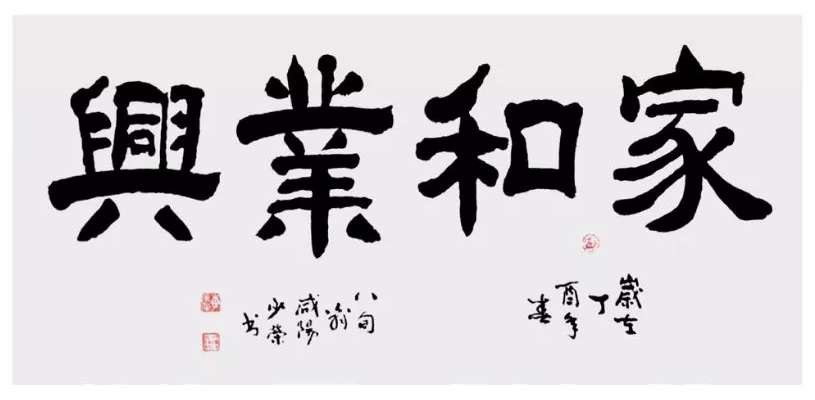 家和業興
歲在
丁
酉年
春
八旬
翁
咸陽
少榮
书